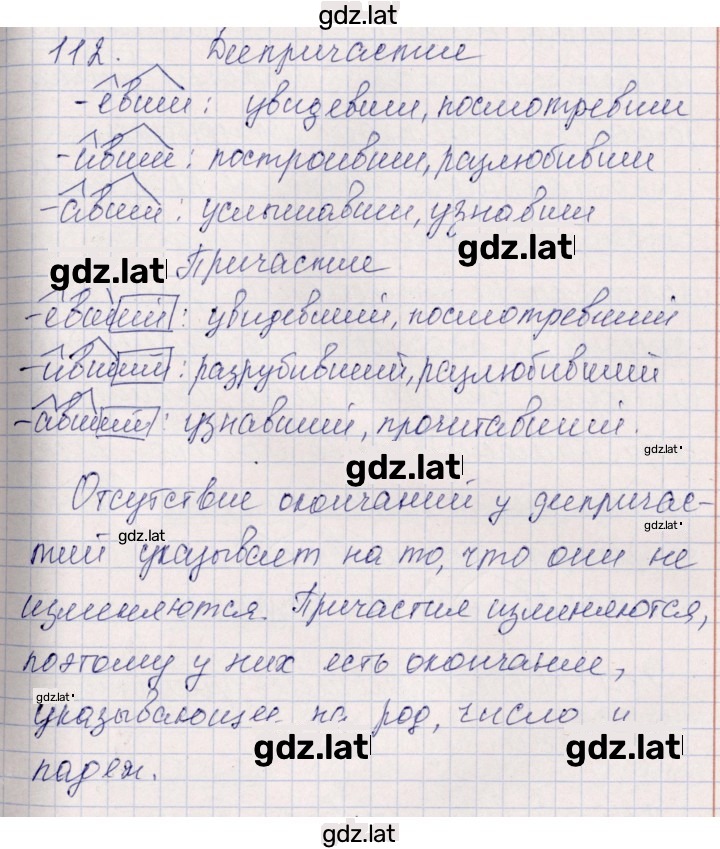 gdz.lat
112. Деепричастие
-евши: увидевши, посмотревши
-ивши: построивши, разлюбивши
-авши: услышавши, узнавши
gdz.lat
gdz.lat Причастие
-евший: увидевший, посмотревший
-ивший: разрубивший, разлюбивший
-авший: узнавший, прочитавший.
gdz.lat
gdz.lat
Отсутствие окончаний у деепричас-
gdz.lat
gdz.lat
тий указывает на то, что они не
изменяются. Причастия изменяются,
поэтому у них есть окончание,
gdz.lat
указывающее на род, число и
gdz.lat
gdz.lat
падеж.
gdz.lat